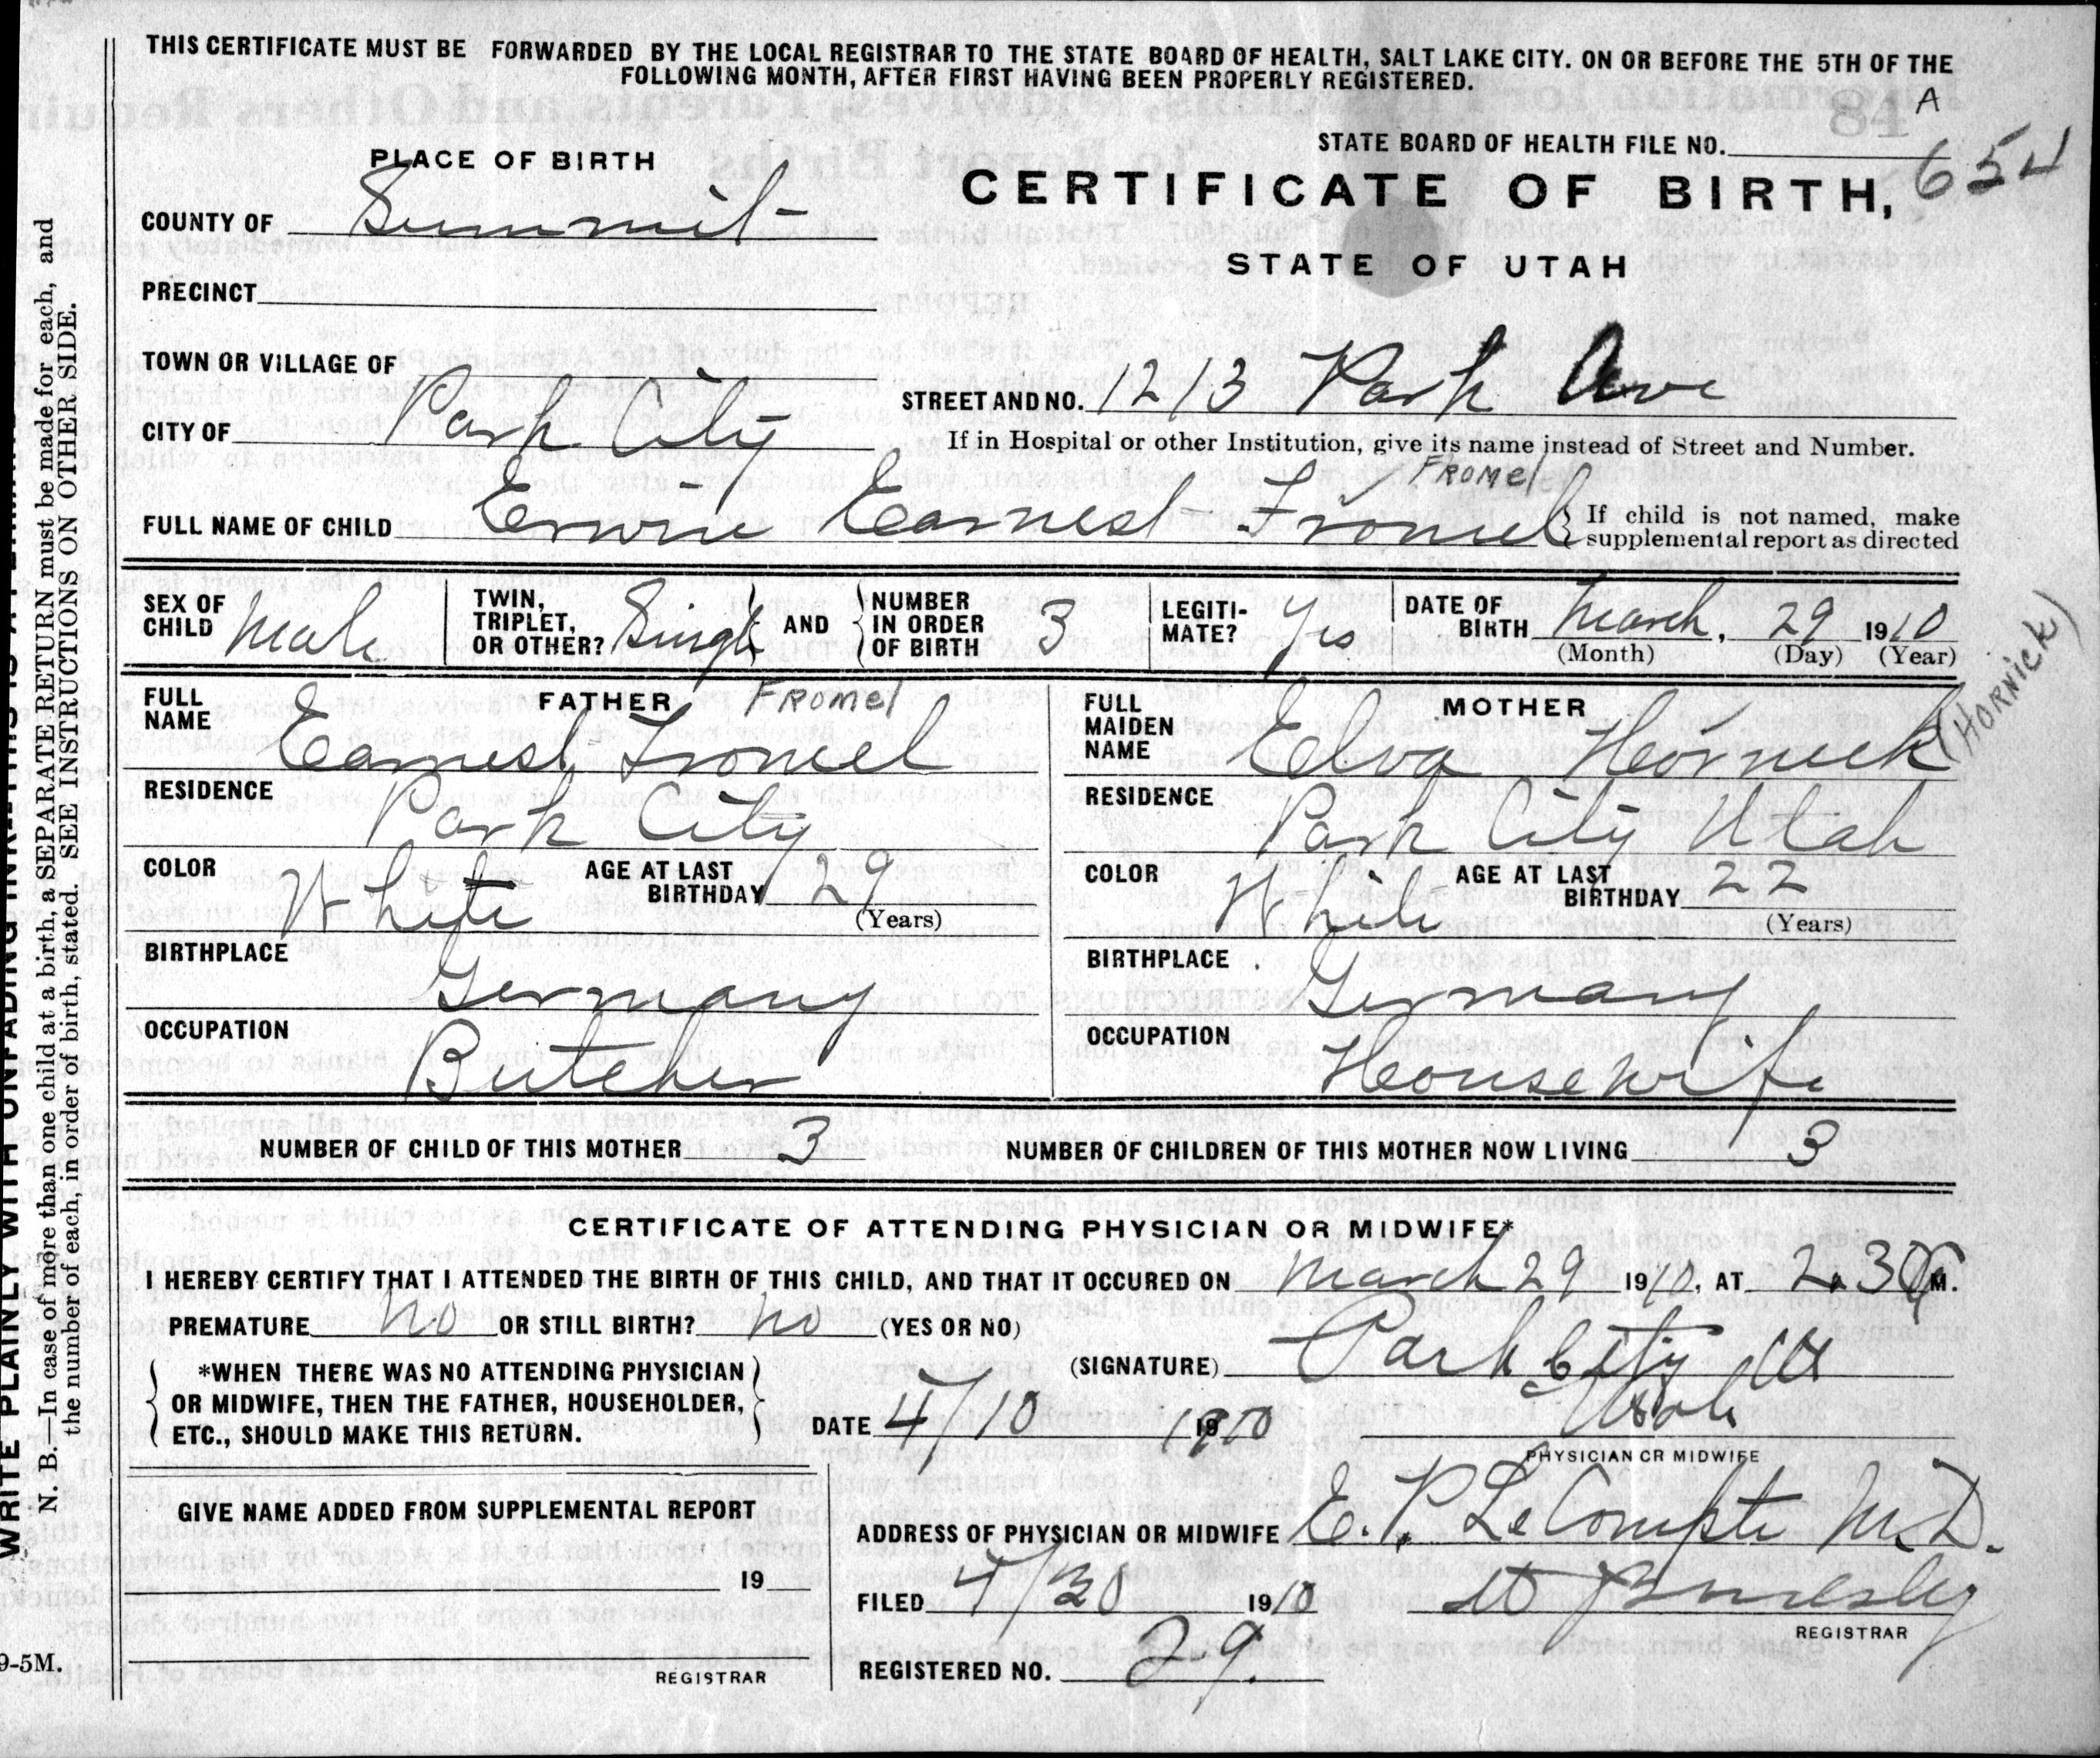 THIS CERTIFICATE MUST BE FORWARDED BY THE LOCAL REGISTRAR TO THE STATE BOARD OF HEALTH, SALT LAKE CITY. ON OR BEFORE THE 5TH OF THE
FOLLOWING MONTH, AFTER FIRST HAVING BEEN PROPERLY REGISTERED.
A
84
STATE BOARD OF HEALTH FILE NO. 654
PLACE OF BIRTH
CERTIFICATE OF BIRTH,
STATE OF UTAH
COUNTY OF Summit
PRECINCT
TOWN OR VILLAGE OF
STREET AND NO. 1213 Park Ave
CITY OF Park City
If in Hospital or other Institution, give its name instead of Street and Number.
FROMEl
FULL NAME OF CHILD Erwin Earnest Fromel
If child is not named, make
supplemental report as directed
SEX OF CHILD Male
TWIN, TRIPLET, OR OTHER? Single AND NUMBER IN ORDER OF BIRTH 3
LEGITIMATE? Yes
DATE OF BIRTH March, 29 1910
(Month) (Day) (Year)
FATHER FROMEl
FULL NAME Earnest Fromel
RESIDENCE Park City
COLOR White AGE AT LAST BIRTHDAY 29
(Years)
BIRTHPLACE Germany
OCCUPATION Butcher
MOTHER
FULL MAIDEN NAME Elva Hornick (HORNICK)
RESIDENCE Park City Utah
COLOR White AGE AT LAST BIRTHDAY 22
(Years)
BIRTHPLACE Germany
OCCUPATION Housewife
NUMBER OF CHILD OF THIS MOTHER 3 NUMBER OF CHILDREN OF THIS MOTHER NOW LIVING 3
CERTIFICATE OF ATTENDING PHYSICIAN OR MIDWIFE*
I HEREBY CERTIFY THAT I ATTENDED THE BIRTH OF THIS CHILD, AND THAT IT OCCURED ON March 29 1910, AT 2.30 P M.
PREMATURE no OR STILL BIRTH? no (YES OR NO)
*WHEN THERE WAS NO ATTENDING PHYSICIAN
OR MIDWIFE, THEN THE FATHER, HOUSEHOLDER,
ETC., SHOULD MAKE THIS RETURN.
(SIGNATURE) Park City
Utah
DATE 4/10 1910
PHYSICIAN OR MIDWIFE
GIVE NAME ADDED FROM SUPPLEMENTAL REPORT
19
REGISTRAR
ADDRESS OF PHYSICIAN OR MIDWIFE E. P. LeCompte M.D.
FILED 4/30 1910
REGISTRAR
REGISTERED NO. 29.
WRITE PLAINLY WITH UNFADING INK
N. B.—In case of more than one child at a birth, a SEPARATE RETURN must be made for each, and
the number of each, in order of birth, stated. SEE INSTRUCTIONS ON OTHER SIDE.
9-5M.